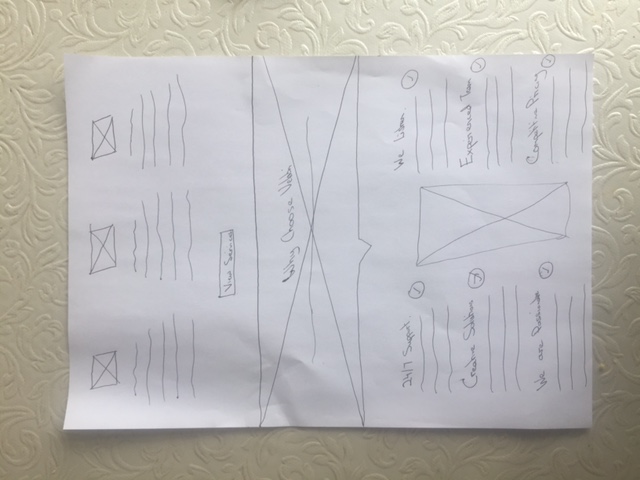 View Services
Why Choose
24/7 Support
Creative Solutions
We are
We listen
Experienced Team
Competitive Pricing